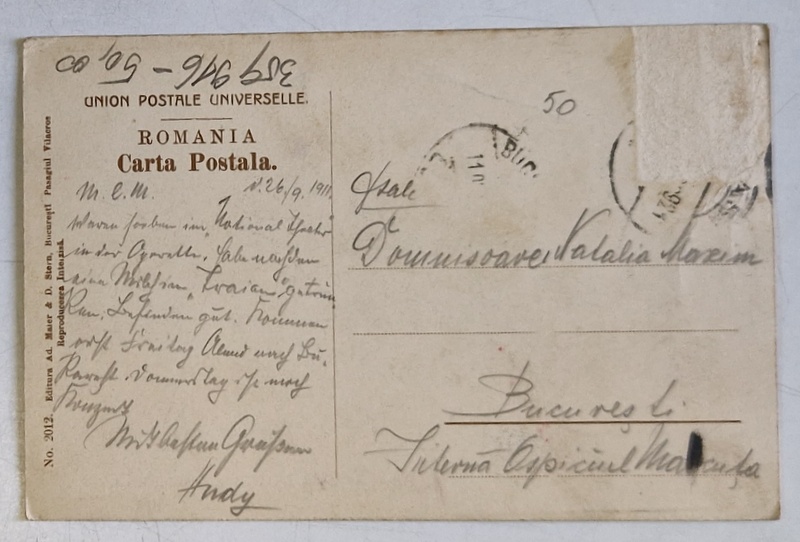 389 946 – 50,00
UNION POSTALE UNIVERSELLE.
ROMANIA
Carta Postala.
No. 2012. Editura Ad. Maier & D. Stern, București Pasagiul Vilacros
Reproducerea Interzisă.
M. C. M. d. 26/9. 1911.
Waren soeben im „National Theater"
in der Operette. Habe nachdem
eine Milch im „Traian" getrun
ken. Befinden gut. Kommen
erst Freitag Abend nach Bu-
karest. Donnerstag ist noch
Konzert
Mit besten Grüssen
Andy
50
BUC
Domnisoarei Natalia Maxim
București
Internă Ospiciul Marcuța